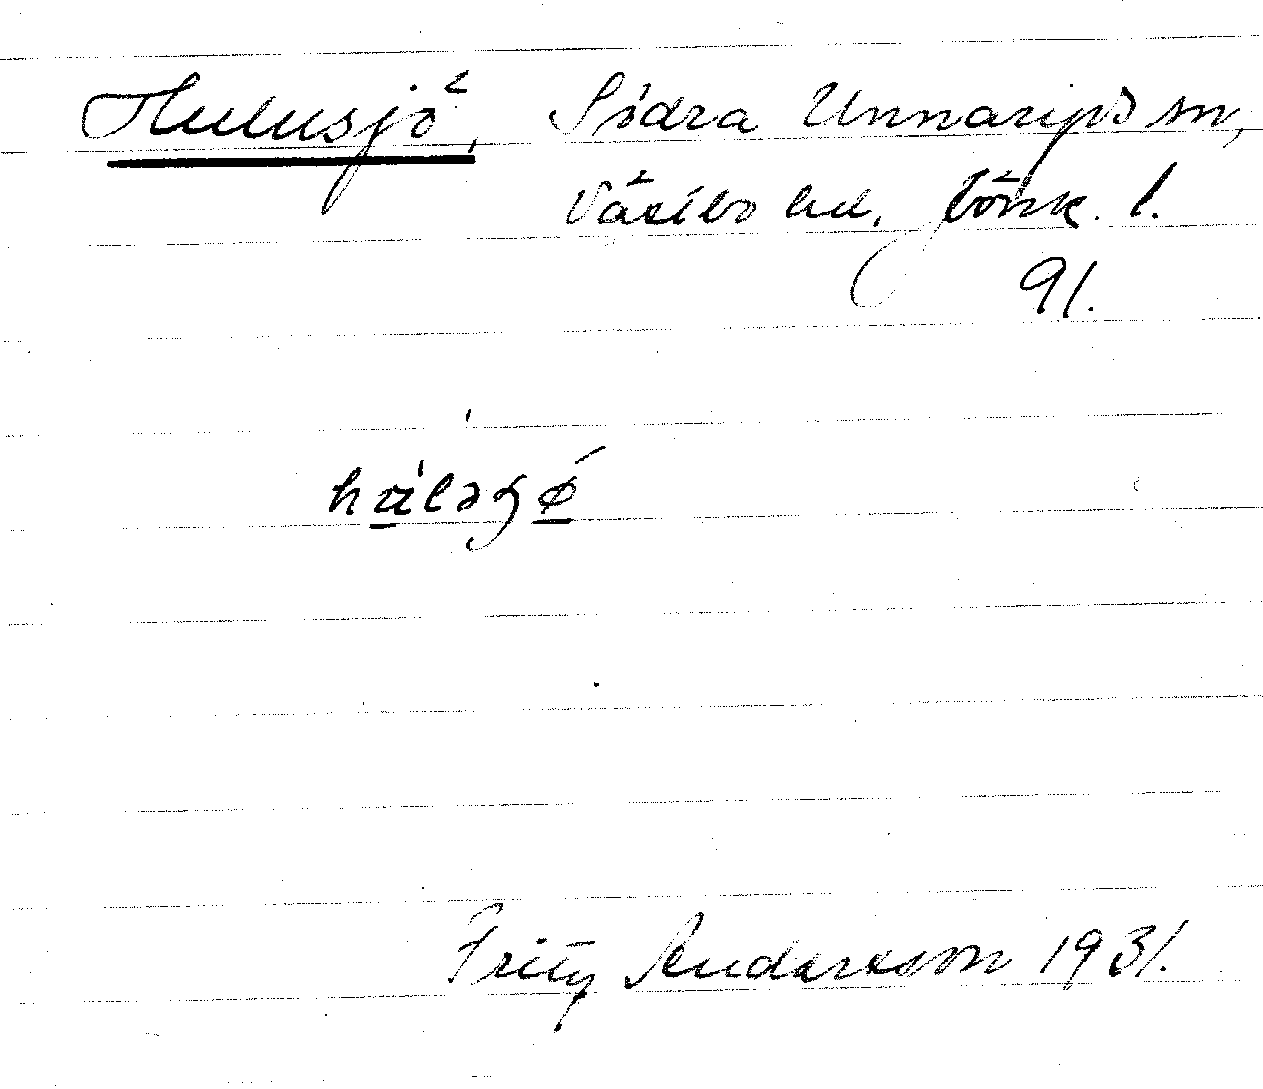 Hulusjö, Södra Unnaryds sn,
Västbo hd. Jönk. l.
91.
Fritz Andersson 1931.